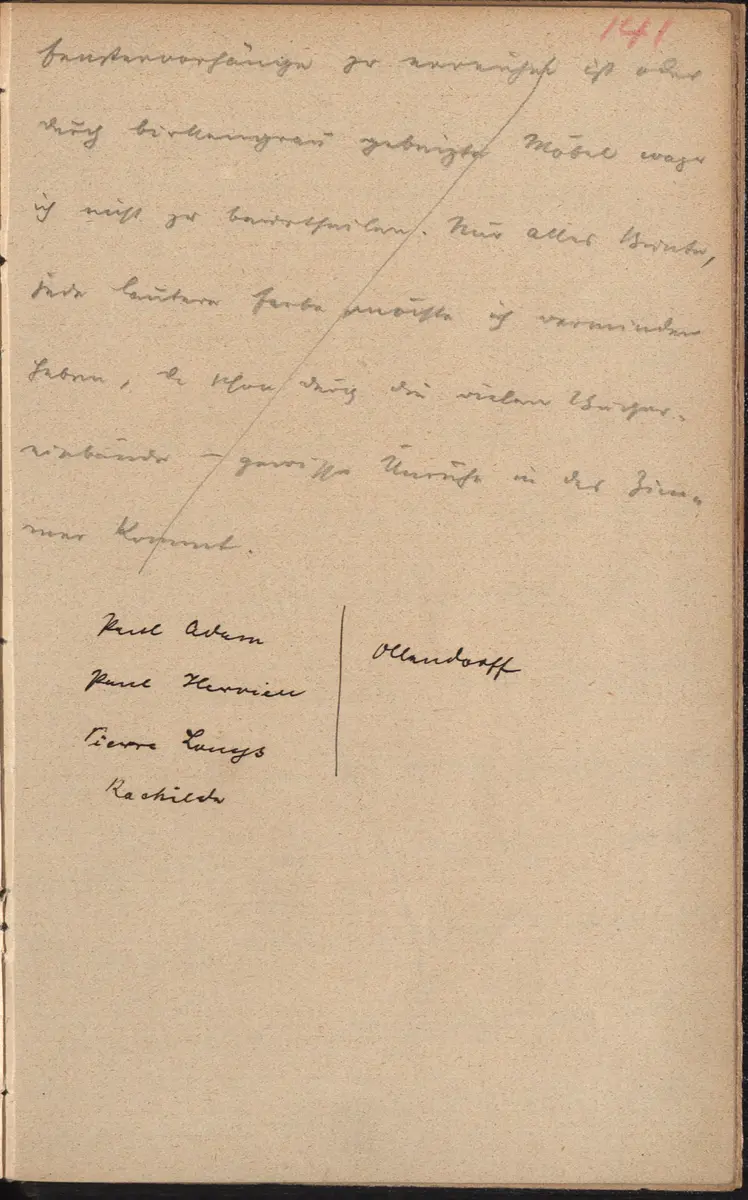 141
fenstervorhänge zu erreichen ist oder
durch birkengrau gebeizte Möbel wage
ich nicht zu beurtheilen. Nur alles Bunte,
jede lautere Farbe möchte ich vermieden
haben, da schon durch die vielen Bücher-
einbände – gewisse Unruhe in das Zim-
mer kommt.
Paul Adam
Paul Hervieu
Pierre Louys
Rachilde
Ollendorff